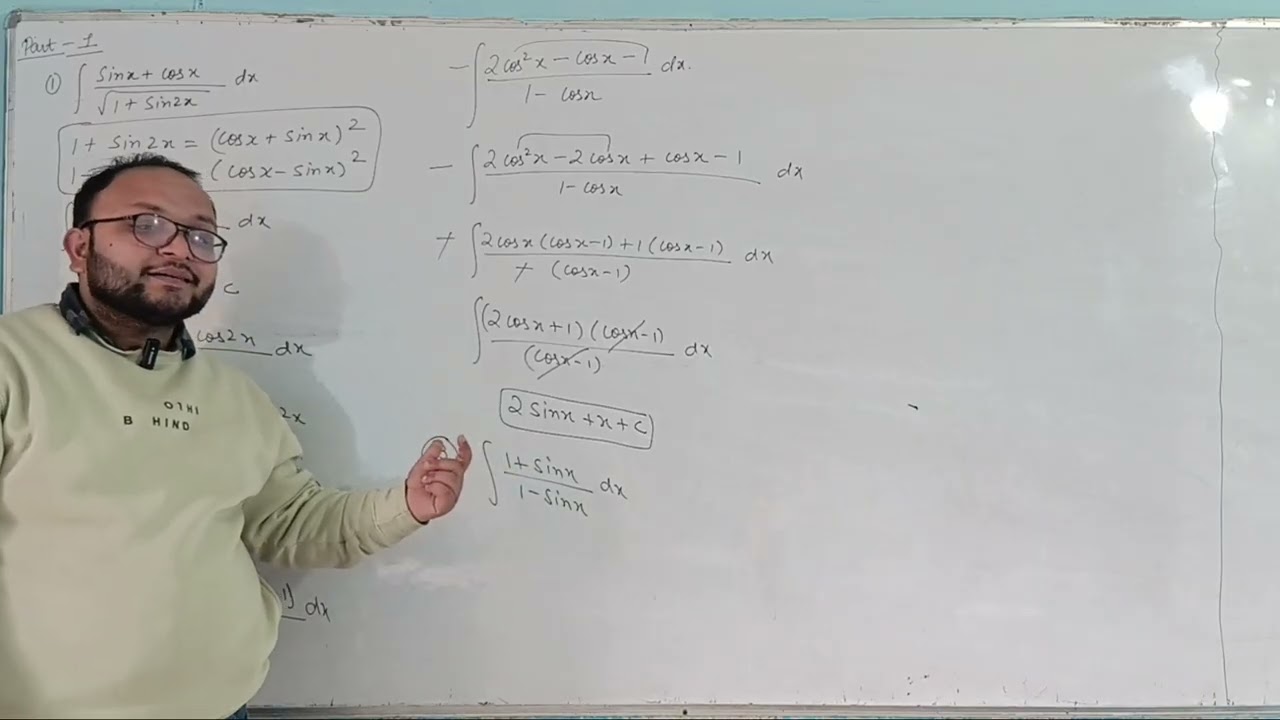 Part - 1
① ∫ sinx + cosx / √1 + sin2x dx
1 + sin2x = (cosx + sinx)²
(cosx - sinx)²
dx
c
cos2x dx
2x
1) dx
- ∫ 2cos²x - cosx - 1 / 1 - cosx dx.
- ∫ 2cos²x - 2cosx + cosx - 1 / 1 - cosx dx
+ ∫ 2cosx (cosx-1) + 1 (cosx-1) / + (cosx-1) dx
∫ (2cosx+1) (cosx-1) / (cosx-1) dx
2 sinx + x + c
∫ 1 + sinx / 1 - sinx dx
OTHI
B HIND